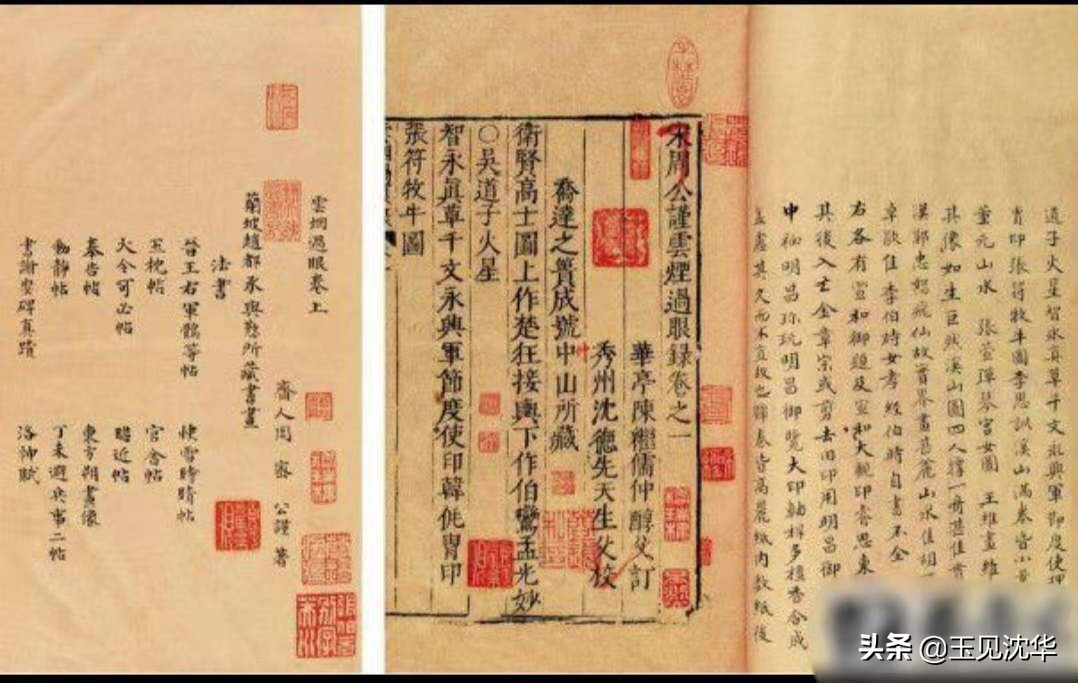 雲烟過眼卷上
齋人周密公謹著
蘭坡趙都承與懃所藏書畫
法書
晉王右軍鵝等帖 快雪時晴帖
玉枕帖 官舍帖
大令可必帖 近帖
奉告帖 東方朔畫像
動靜帖 丁未避兵事二帖
書謝安碑真蹟 洛神賦
宋周公謹雲煙過眼錄卷之一
華亭陳繼儒仲醇父訂
秀州沈德先天生父校
喬達之簣成號中山所藏
衛賢高士圖上作楚狂接輿下作伯鸞孟光妙
○吳道子火星
智永眞草千文永興軍節度使印韓侂冑印
張符牧牛圖
道子火星智永真草千文永興軍節度使
印張符牧牛圖李思訓溪山滿卷皆小
董元山水 張萱彈琴宮女圖 王維畫維
其像如生巨然溪山圖四人撑一舟甚佳
漢郭忠恕飛仙故實界畫甚麗山水佳胡
卓歇佳李伯時女孝經伯時自書不全
右各有宣和御題及宣和大觀印喬思東
其後入亡金章宗或剪去旧印用明昌御
中袖明昌珎玩明昌御覽大印軸桿多檀香合成
盖慮其久而不直故也錦卷皆高麗紙内数紙後
头条 @玉见沈华